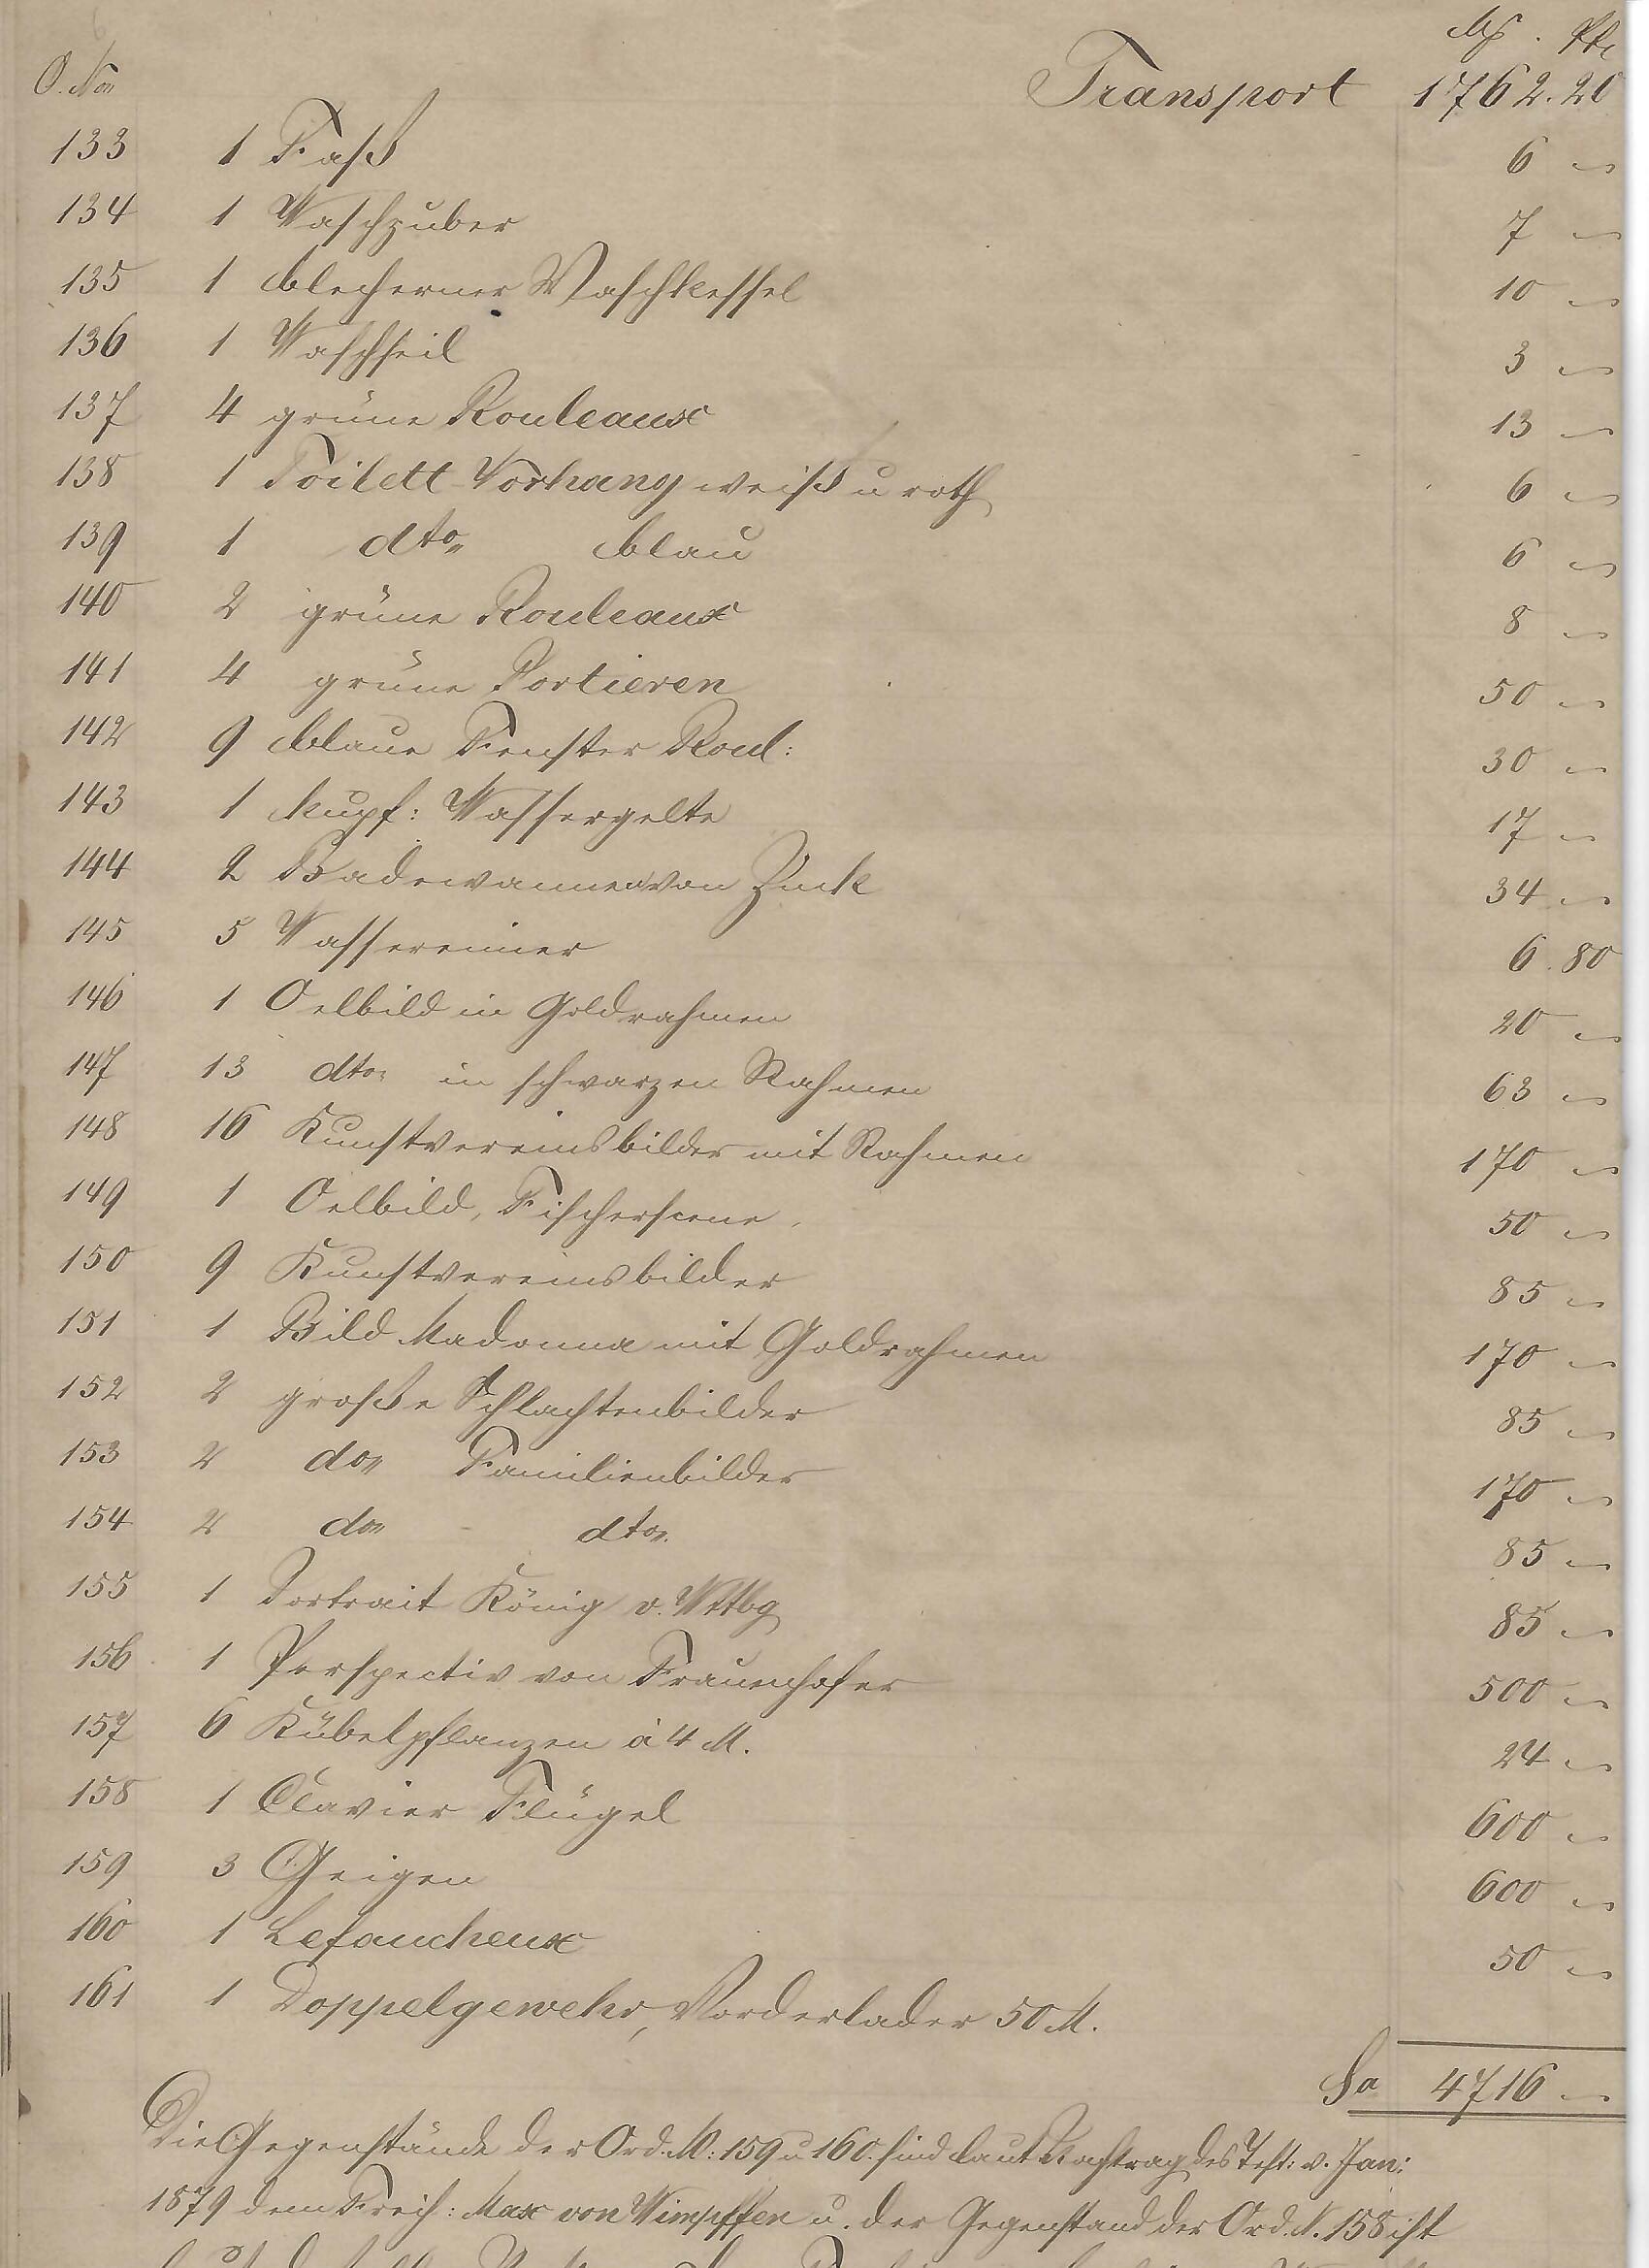 M. Pf.
O. Nro
Transport 1762.20
133 1 Faß 6 "
134 1 Waschzuber 7 "
135 1 blecherner Waschkessel 10 "
136 1 Waschseil 3 "
137 4 grüne Rouleaux 13 "
138 1 Toilett-Vorhang weiß u roth 6 "
139 1 dto. blau 6 "
140 2 grüne Rouleaux 8 "
141 4 grüne Portieren 50 "
142 9 blaue Fenster Roul: 30 "
143 1 kupf: Wassergelte 17 "
144 2 Badewannen von Zink 34 "
145 5 Wassereimer 6.80
146 1 Oelbild in Goldrahmen 20 "
147 13 dto. in schwarzen Rahmen 63 "
148 16 Kunstvereinsbilder mit Rahmen 170 "
149 1 Oelbild, Fischerscene. 50 "
150 9 Kunstvereinsbilder 85 "
151 1 Bild Madonna mit Goldrahmen 170 "
152 2 große Schlachtenbilder 85 "
153 2 do. Familienbilder 170 "
154 2 do. dto. 85 "
155 1 Portrait König v. Wttbg 85 "
156 1 Perspectiv von Frauenhofer 500 "
157 6 Kübelpflanzen à 4 M. 24 "
158 1 Clavier Flügel 600 "
159 3 Geigen 600 "
160 1 Lefaucheux 50 "
161 1 Doppelgewehr, Vorderlader 50 M.
Sa 4716 "
Die Gegenstände der Ord. N: 159 u 160. sind laut Nachtrag des Test: v. Jan:
1879 dem Freih: Max von Wimpffen u. der Gegenstand der Ord. N. 158 ist